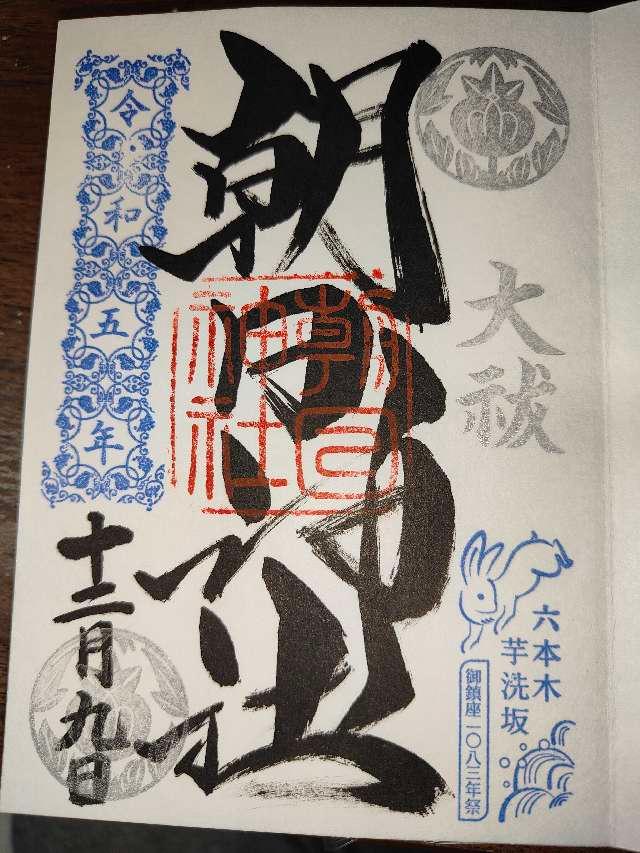 大祓
六本木
芋洗坂
御鎮座一〇八三年祭
朝日神社
朝日
神社
令和五年
十二月九日